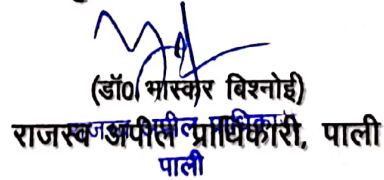 (डॉ0 भास्कर बिश्नोई)
राजस्व अपील प्राधिकारी, पाली
राजस्व अपील प्राधिकारी
पाली